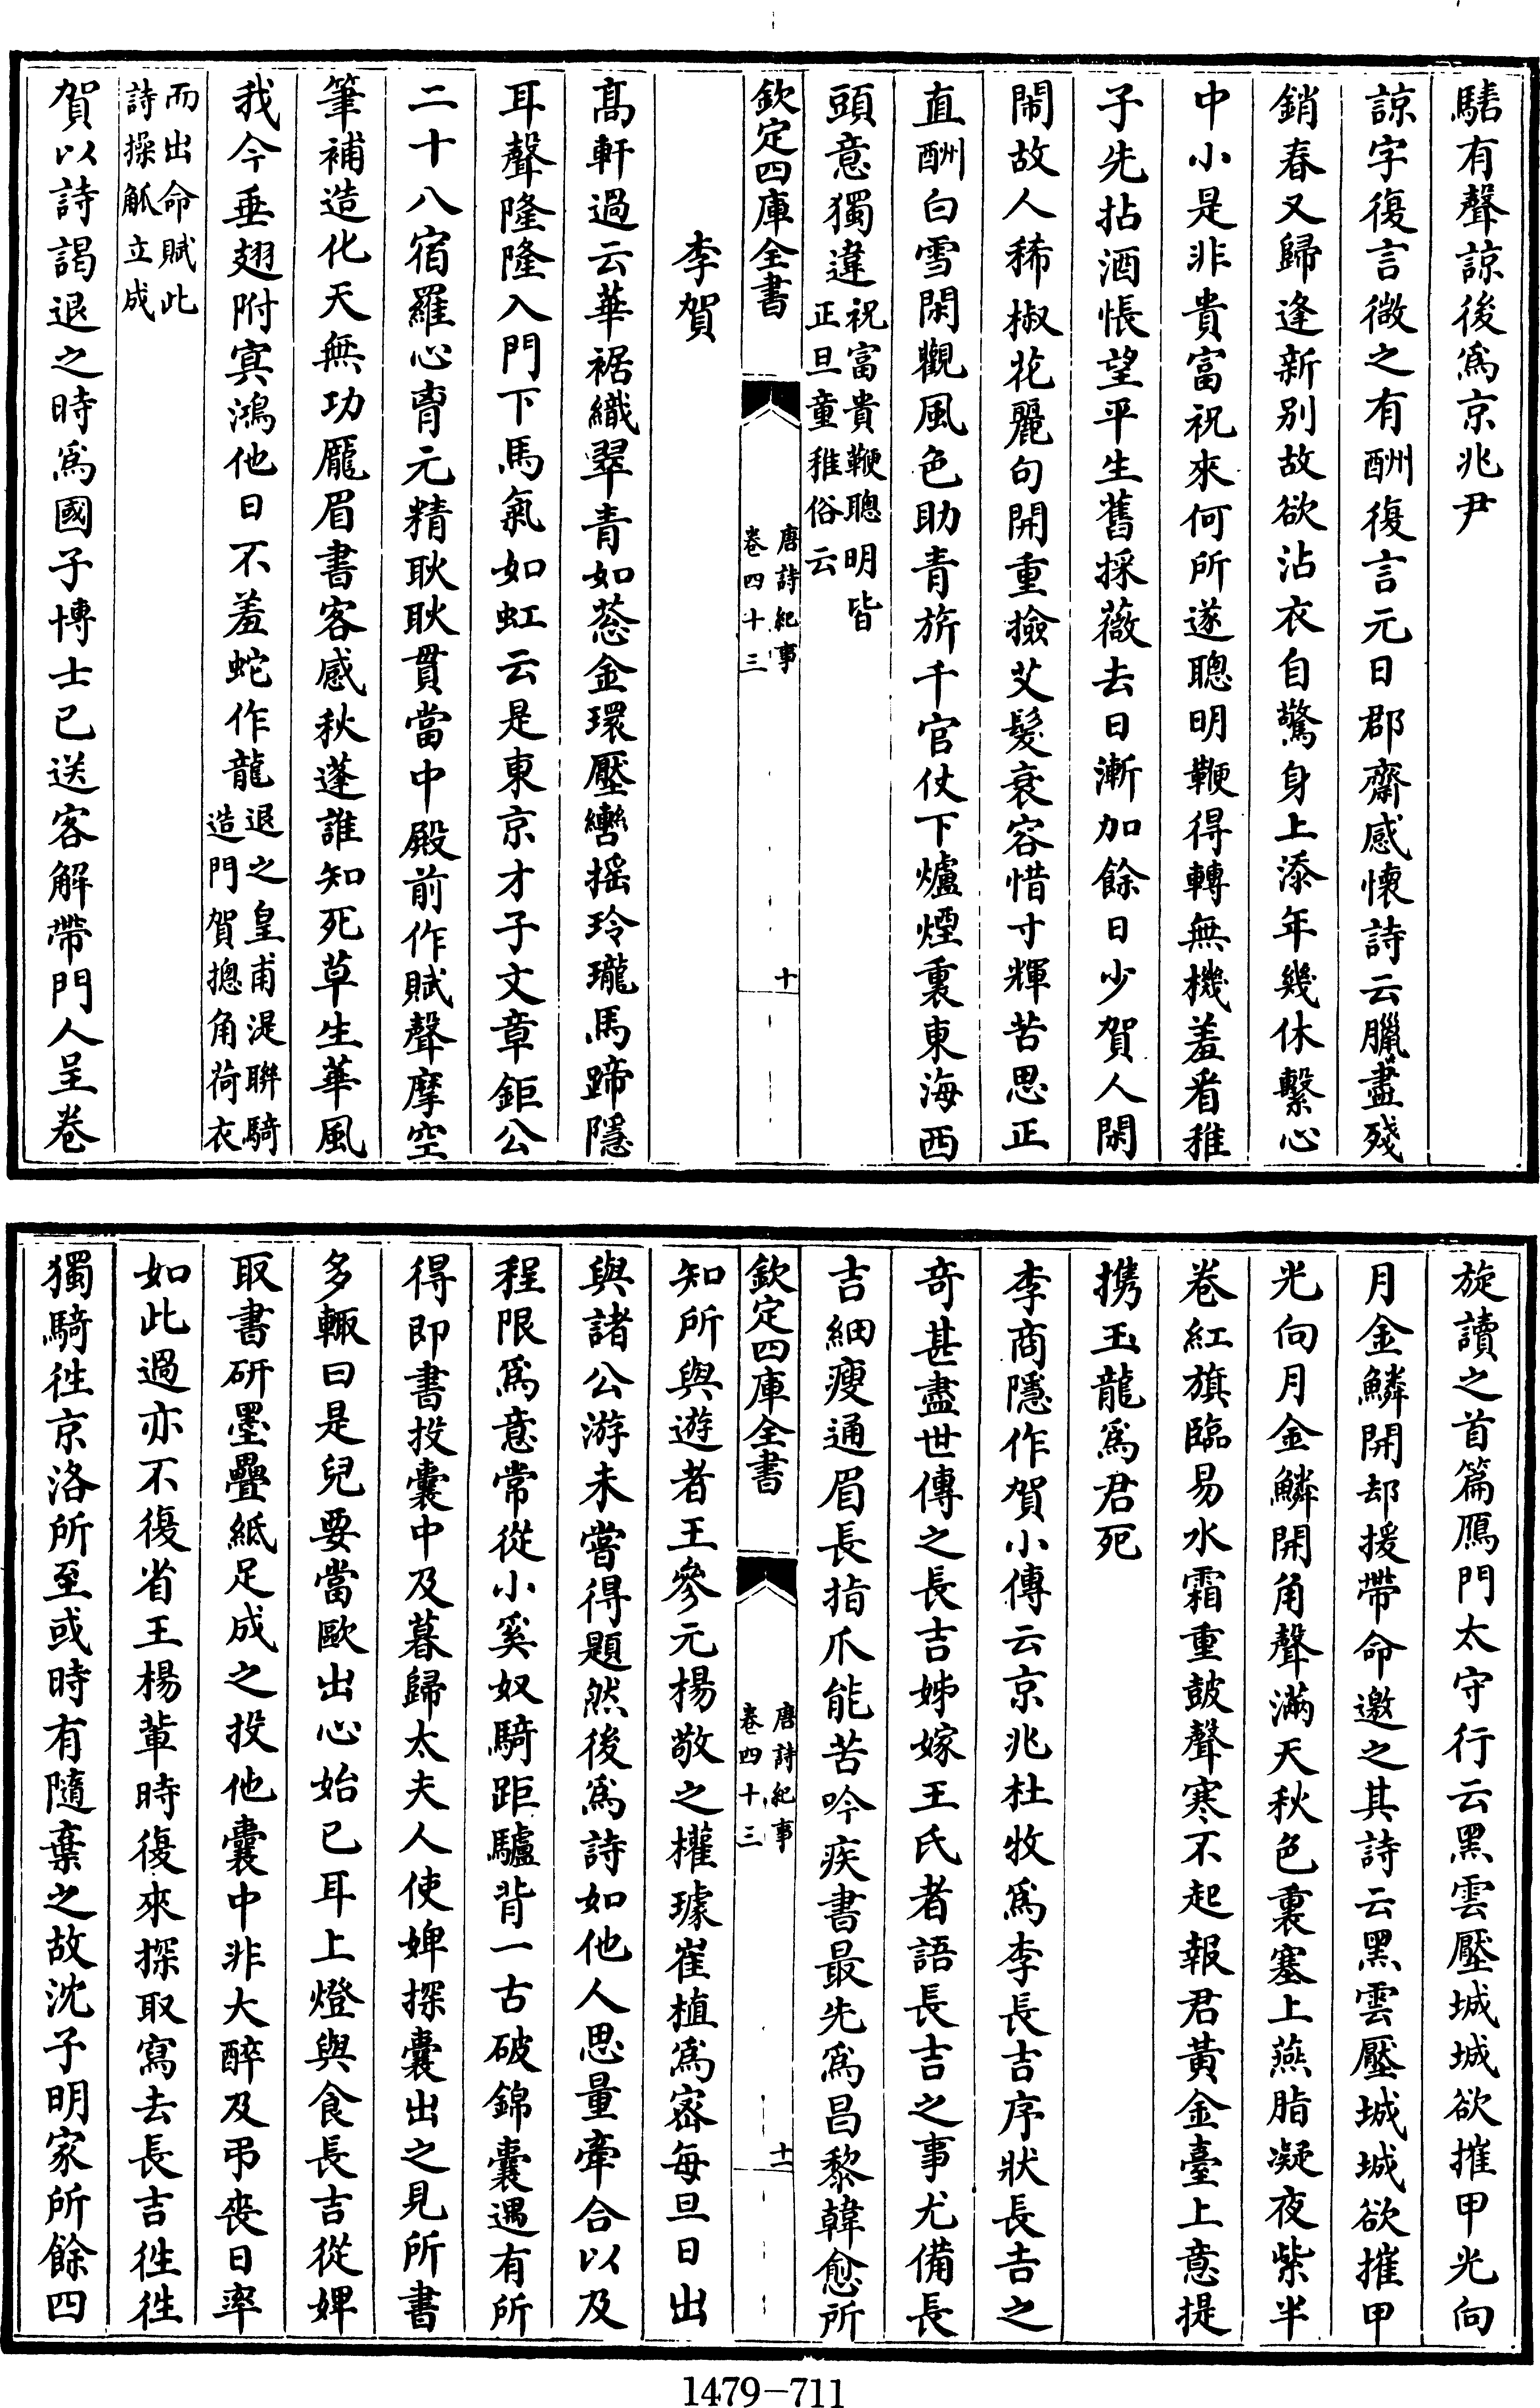 騞有聲諒後為京兆尹
諒字復言微之有酬復言元日郡齋感懐詩云臘盡殘
銷春又歸逢新別故欲沾衣自驚身上添年幾休繫心
中小是非貴富祝來何所遂聰明鞭得轉無機羞看稚
子先拈酒悵望平生舊採薇去日漸加餘日少賀人閑
鬧故人稀椒花麗句開重撿艾髮衰容惜寸輝苦思正
直酬白雪閑觀風色助青旂千官仗下爐煙裏東海西
頭意獨違祝富貴鞭聰明皆
正旦童稚俗云
欽定四庫全書
唐詩紀事
卷四十三
十
李賀
髙軒過云華裾織翠青如葱金環壓轡搖玲瓏馬蹄隱
耳聲隆隆入門下馬氣如虹云是東京才子文章鉅公
二十八宿羅心胷元精耿耿貫當中殿前作賦聲摩空
筆補造化天無功龎眉書客感秋蓬誰知死草生華風
我今垂翅附冥鴻他日不羞蛇作龍退之皇甫湜聯騎
造門賀摠角荷衣
而出命賦此
詩操觚立成
賀以詩謁退之時為國子博士已送客解帶門人呈卷
旋讀之首篇鴈門太守行云黑雲壓城城欲摧甲光向
月金鱗開却援帶命邀之其詩云黑雲壓城城欲摧甲
光向月金鱗開角聲滿天秋色裏塞上燕脂凝夜紫半
卷紅旗臨易水霜重皷聲寒不起報君黃金臺上意提
携玉龍為君死
李商隱作賀小傳云京兆杜牧為李長吉序狀長吉之
奇甚盡世傳之長吉姊嫁王氏者語長吉之事尤備長
吉細瘦通眉長指爪能苦吟疾書最先為昌黎韓愈所
欽定四庫全書
唐詩紀事
卷四十三
十一
知所與遊者王參元楊敬之權璩崔植為宻每旦日出
與諸公游未嘗得題然後為詩如他人思量牽合以及
程限為意常從小奚奴騎距驢背一古破錦囊遇有所
得即書投囊中及暮歸太夫人使婢探囊出之見所書
多輙曰是兒要當歐出心始已耳上燈與食長吉從婢
取書研墨疊紙足成之投他囊中非大醉及弔喪日率
如此過亦不復省王楊軰時復來探取寫去長吉徃徃
獨騎徃京洛所至或時有隨棄之故沈子明家所餘四
1479-711